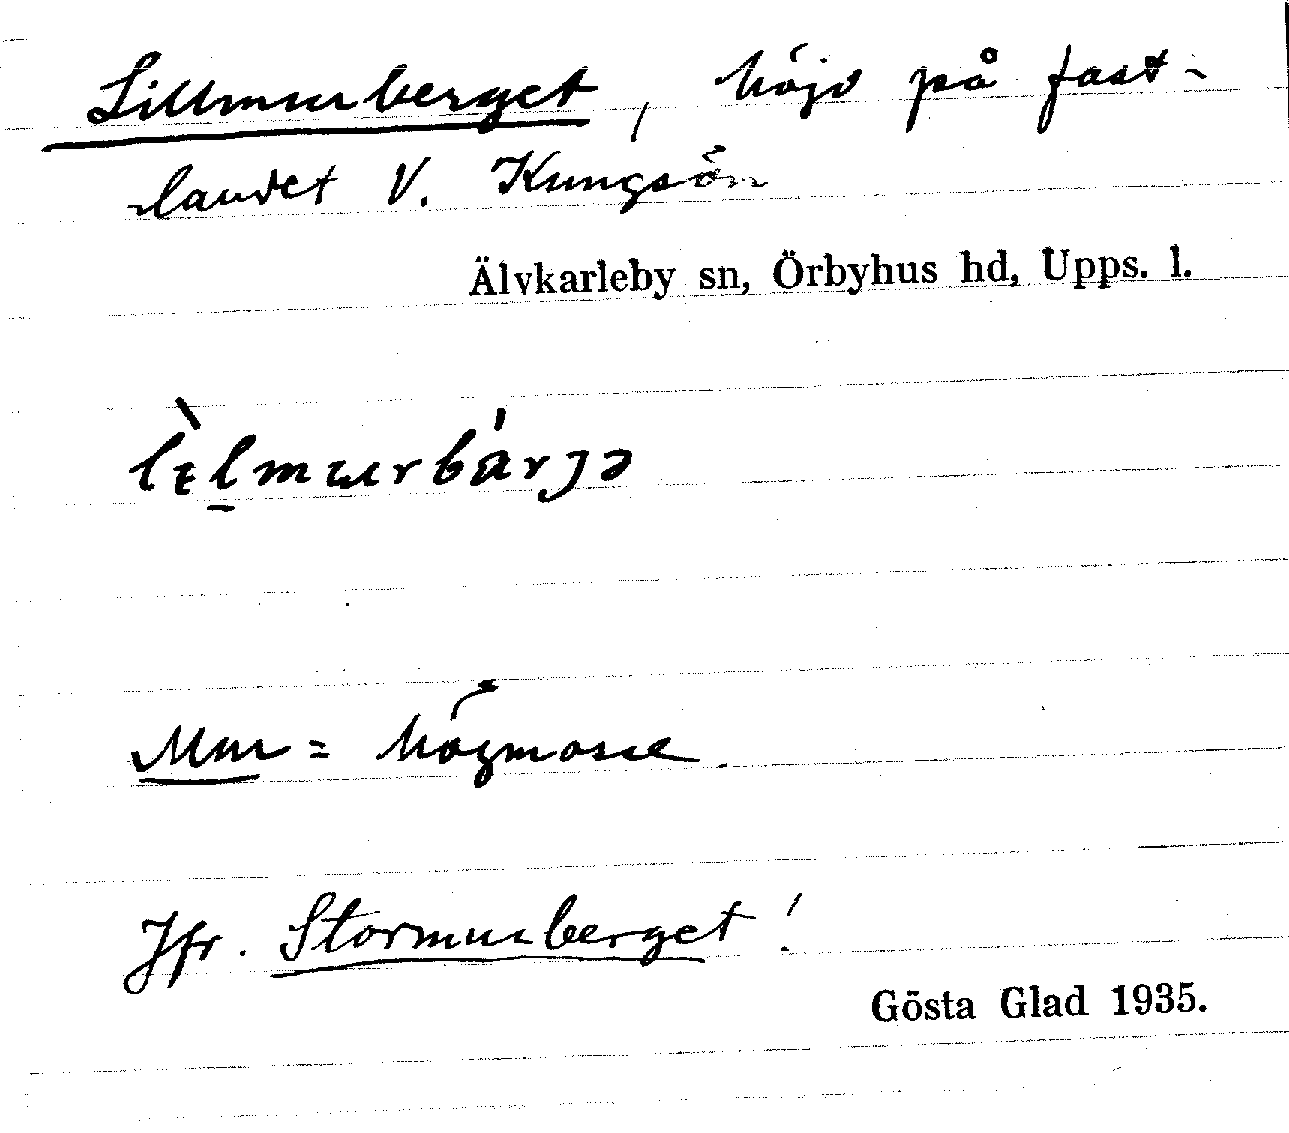 Lillmurberget, höjd på fast-
landet V. Kungsön
Älvkarleby sn, Örbyhus hd, Upps. l.
Mur = högmosse
Jfr. Stormurberget!
Gösta Glad 1935.